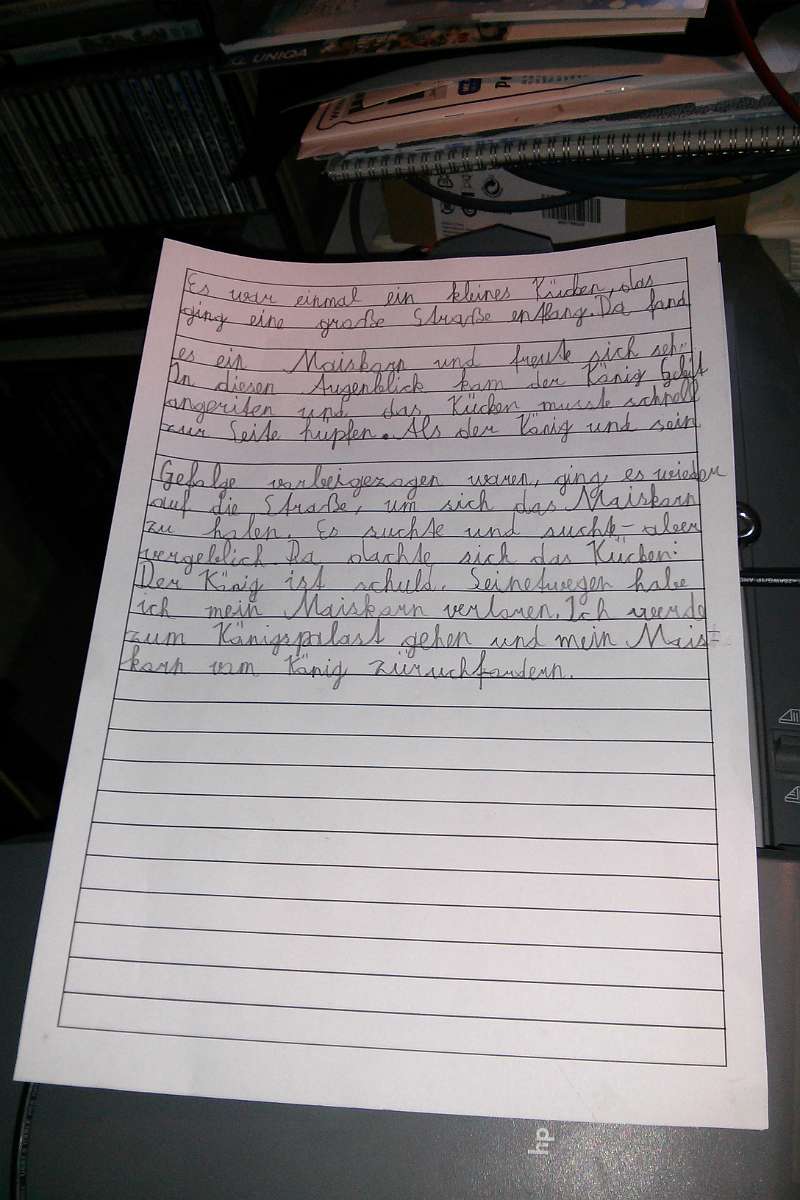 UNIQA
Es war einmal ein kleines Kücken, das
ging eine große Straße entlang. Da fand
es ein Maiskorn und freute sich sehr.
In diesen Augenblick kam der König
angeriten und das Kücken musste schnell
zur Seite hüpfen. Als der König und sein
Gefolge vorbeigezogen waren, ging es wieder
auf die Straße, um sich das Maiskorn
zu holen. Es suchte und suchte - aber
vergeblich. Da dachte sich das Kücken:
Der König ist schuld. Seinetwegen habe
ich mein Maiskorn verloren. Ich werde
zum Königspalast gehen und mein Mais-
korn vom König züruchfordern.
hp